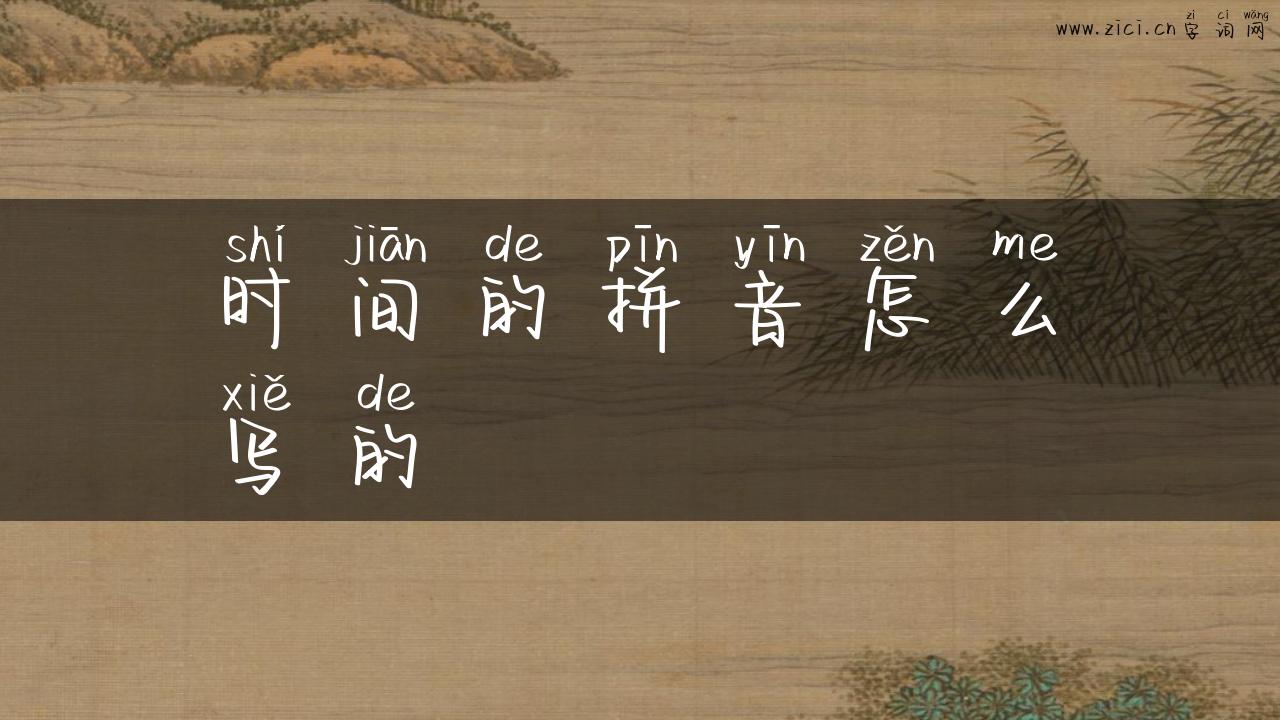 zì cí wǎng
www.zici.cn 字 词 网
shí jiān de pīn yīn zěn me
时 间 的 拼 音 怎 么
xiě de
写 的